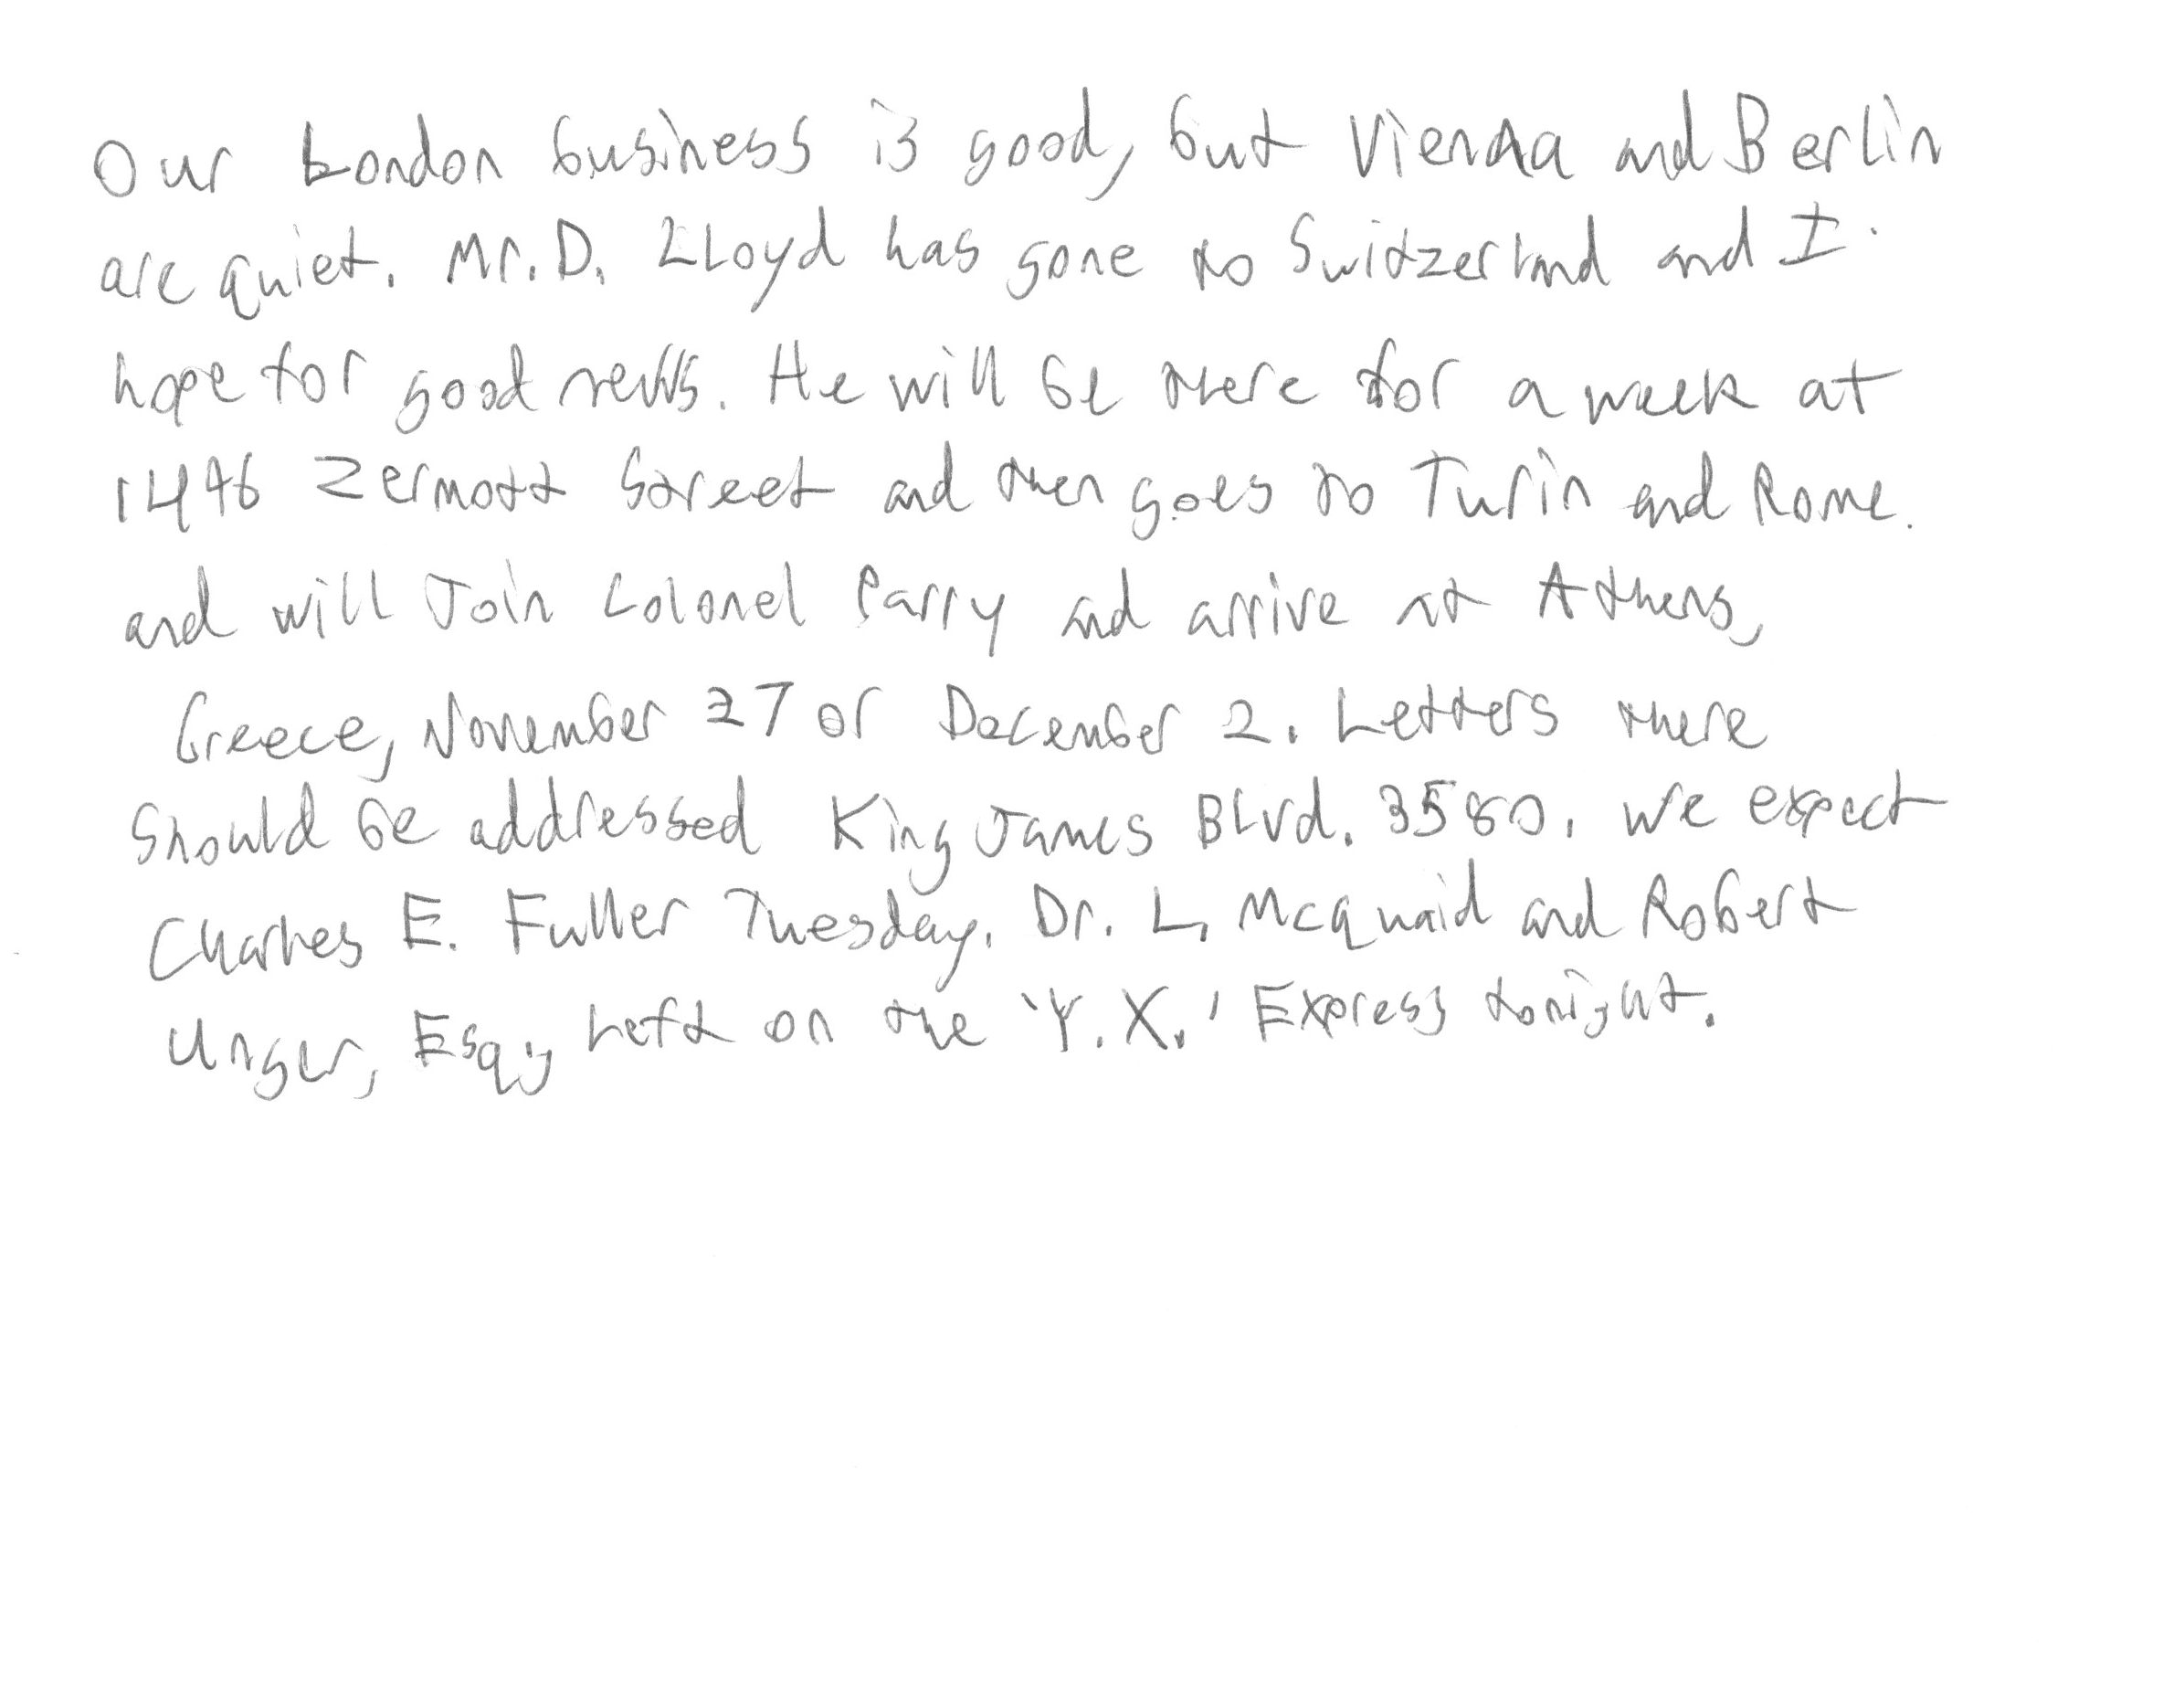 Our London business is good, but Vienna and Berlin
are quiet. Mr. D. Lloyd has gone to Switzerland and I
hope for good news. He will be there for a week at
1446 Zermott Street and then goes to Turin and Rome.
and will Join Colonel Parry and arrive at Athens,
Greece, November 27 or December 2. Letters there
should be addressed King James Blvd. 3580. We expect
Charles E. Fuller Tuesday. Dr. L. McQuaid and Robert
Unger, Esq., Left on the 'Y. X.' Express tonight.